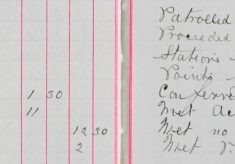 Patrolled
Proceeded
Stations
Points
1 30 Conferred
11 Met Ac
12 30 Met no
2 Met P.